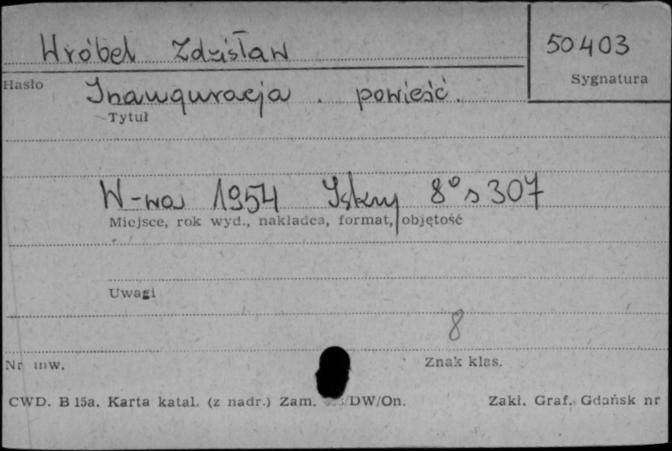 Wróbel Zdzisław
50403
Hasło
Sygnatura
Inauguracja . powieść.
Tytuł
W-wa 1954 Iskry 8° s 307
Miejsce, rok wyd., nakładca, format, objętość
Uwagi
8
Nr inw.
Znak klas.
CWD. B 15a. Karta katal. (z nadr.) Zam. /DW/On.
Zakł. Graf. Gdańsk nr